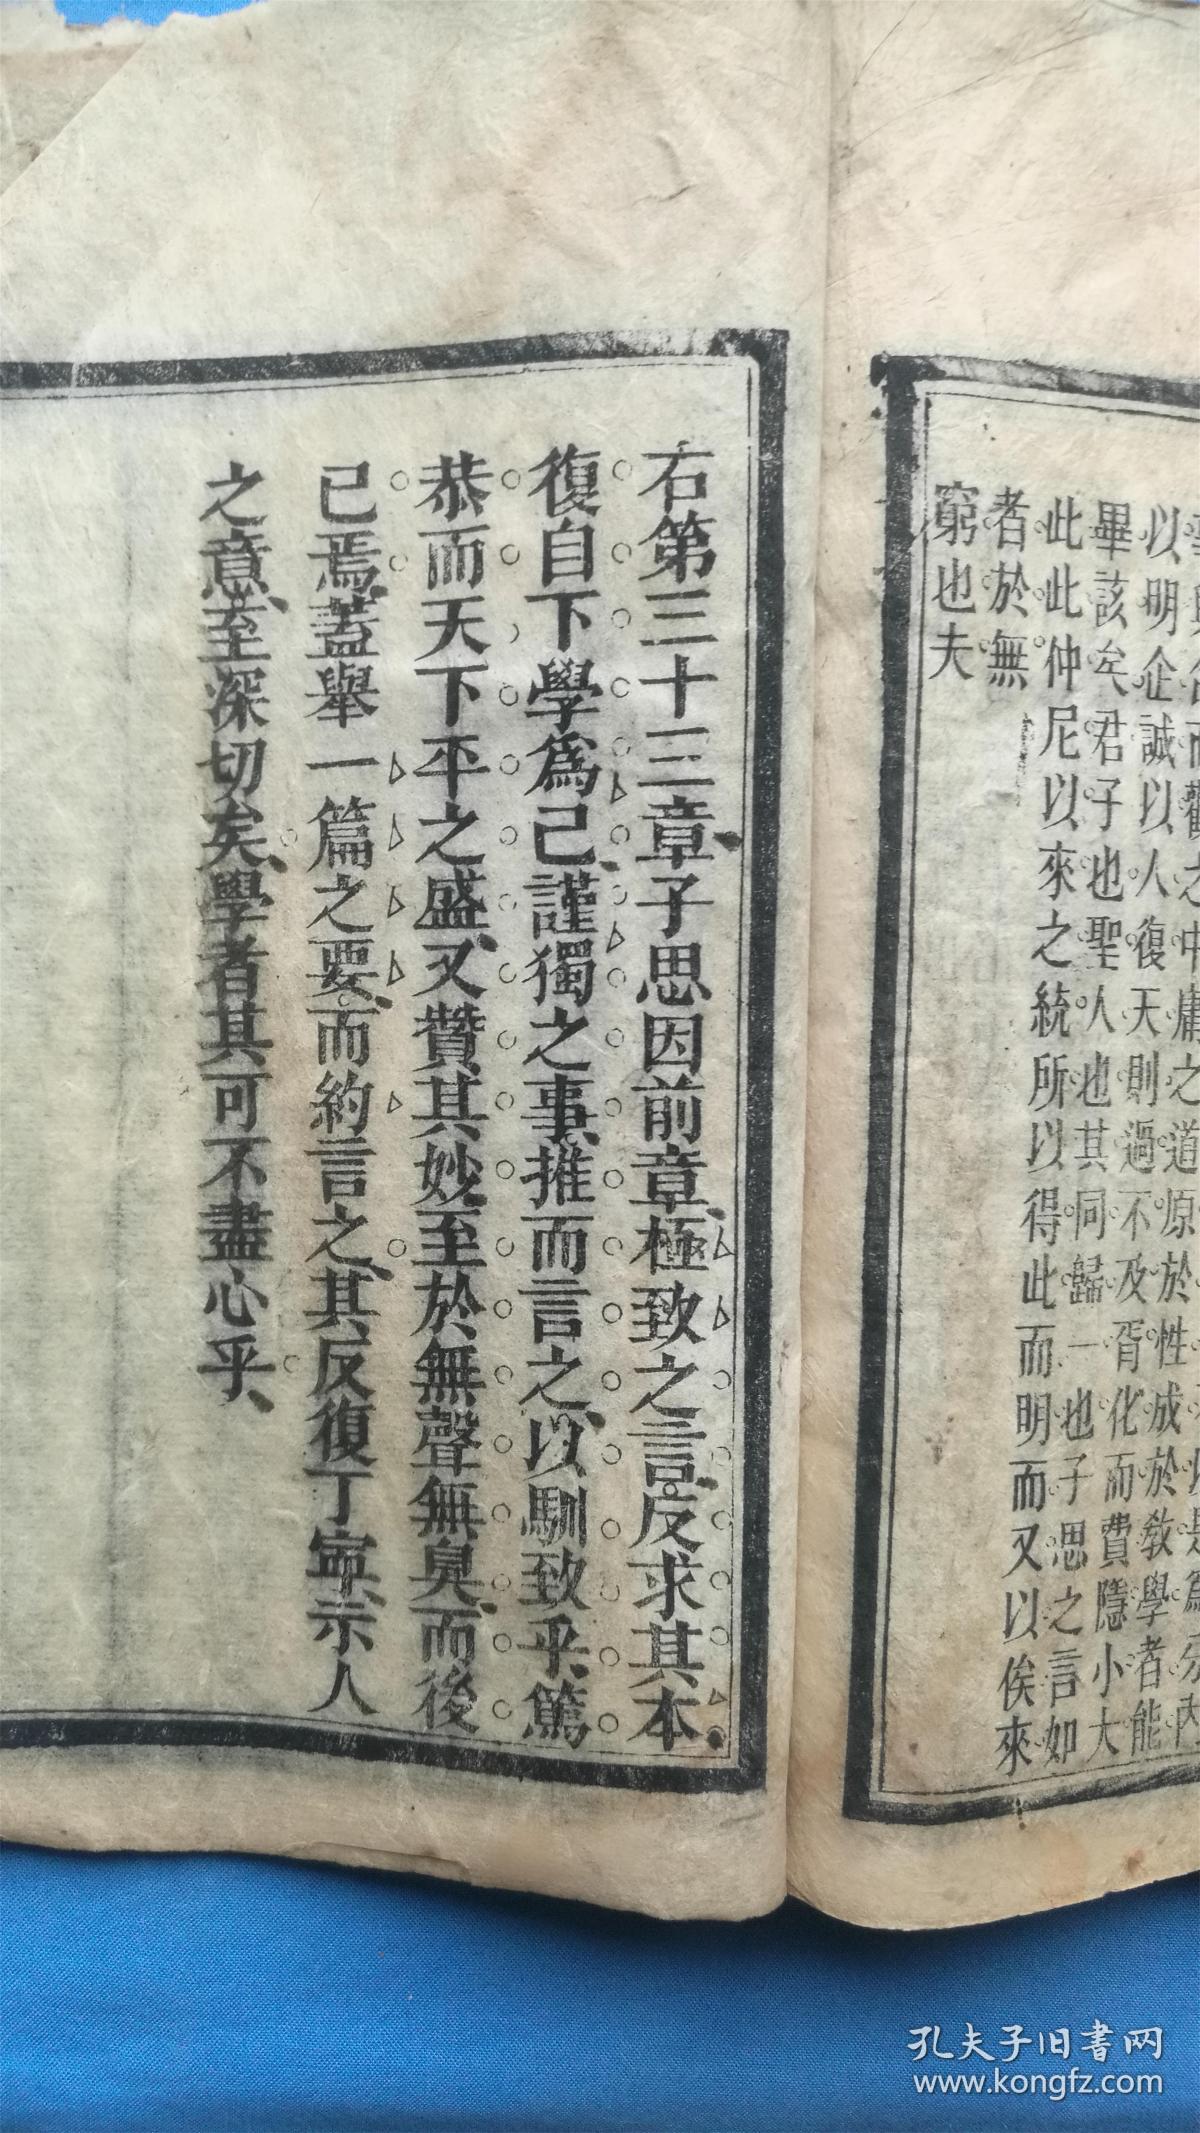 而觀之中庸之道原於性成於教學者能
以明企誠以人復天則過不及胥化而費隱小大
畢該矣君子也聖人也其同歸一也子思之言如
此此仲尼以來之統所以得此而明而又以俟來
者於無
窮也夫
右第三十三章子思因前章極致之言反求其本
復自下學爲己謹獨之事推而言之以馴致乎篤
恭而天下平之盛又贊其妙至於無聲無臭而後
已焉蓋舉一篇之要而約言之其反復丁寧示人
之意至深切矣學者其可不盡心乎
孔夫子旧書网
www.kongfz.com